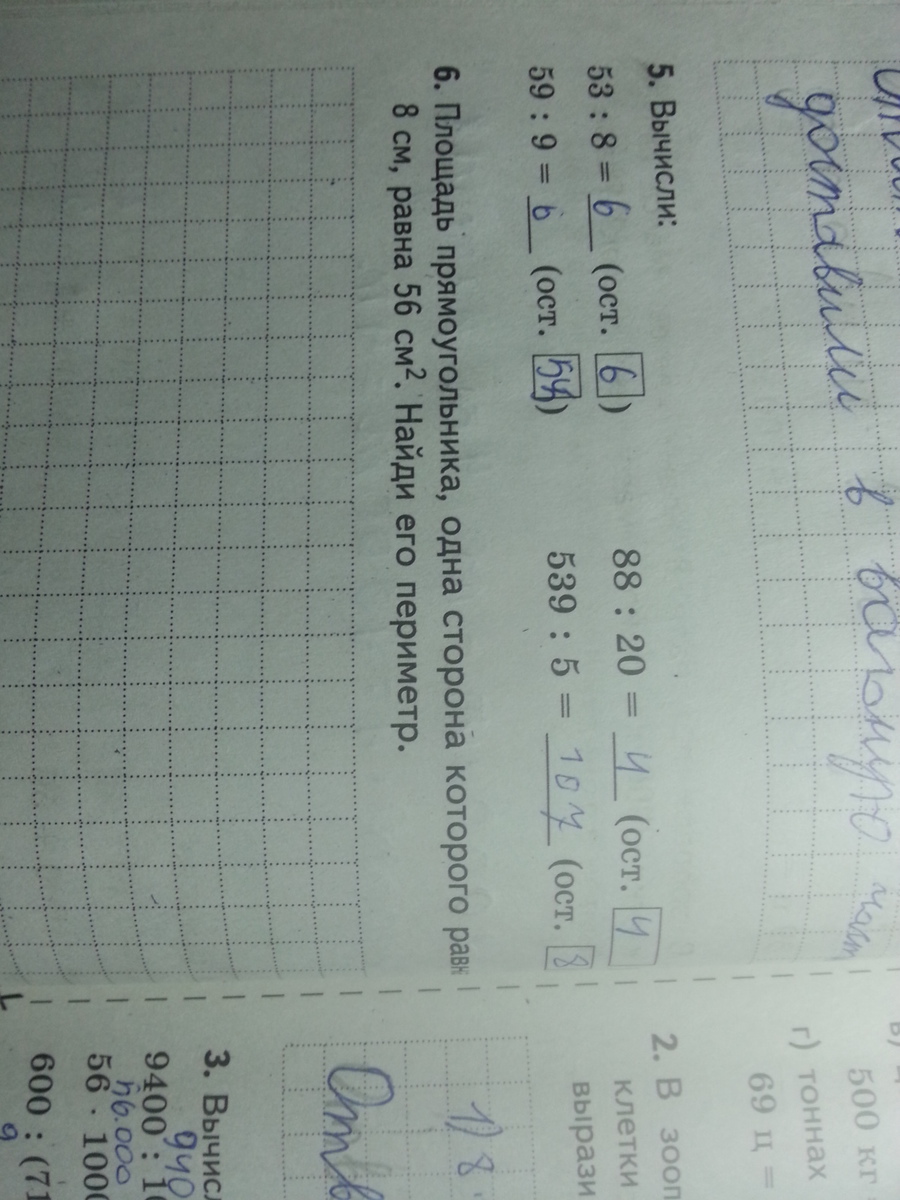 доставили в вагонную
5. Вычисли:
53 : 8 = 6 (ост. 6) 88 : 20 = 4 (ост. 4)
59 : 9 = 6 (ост. 54) 539 : 5 = 107 (ост. 8)
6. Площадь прямоугольника, одна сторона которого равн
8 см, равна 56 см². Найди его периметр.
500 кг
г) тоннах
69 ц =
2. В зооп
клетки
вырази
1) 8
Отв
3. Вычисл
940
9400 : 10
56.000
56 · 1000
9
600 : (71